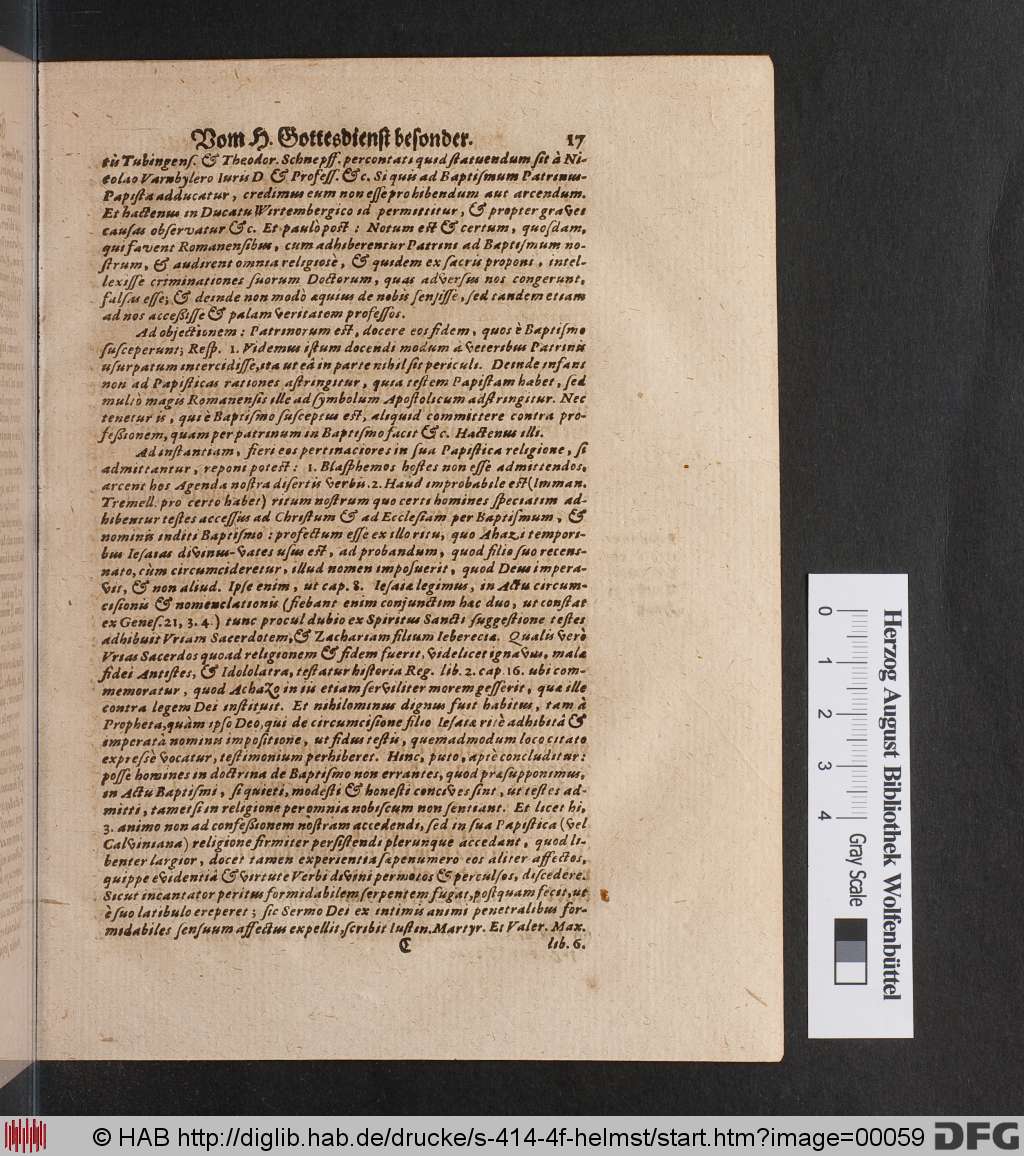 Vom H. Gottesdienst besonder. 17
tis Tubingens. & Theodor. Schnepff. percontati quid statuendum sit à Ni-
colao Varnbylero Iuris D. & Profess. &c. Si quis ad Baptismum Patrinus-
Papista adducatur, credimus eum non esse prohibendum aut arcendum.
Et hactenus in Ducatu Wirtembergico id permittitur, & propter graves
causas observatur &c. Et paulò post: Notum est & certum, quosdam,
qui favent Romanensibus, cum adhiberentur Patrini ad Baptismum no-
strum, & audirent omnia religiosè, & quidem ex sacris proponi, intel-
lexisse criminationes suorum Doctorum, quas adversus nos congerunt,
falsas esse; & deinde non modò æquius de nobis sensisse, sed tandem etiam
ad nos accessisse & palam veritatem professos.
Ad objectionem: Patrinorum est, docere eos fidem, quos è Baptismo
susceperunt; Resp. 1. Videmus istum docendi modum à veteribus Patrinis
usurpatum intercidisse, ita ut eâ in parte nihil sit periculi. Deinde infans
non ad Papisticas rationes astringitur, quia testem Papistam habet, sed
multò magis Romanensis ille ad symbolum Apostolicum adstringitur. Nec
tenetur is, qui è Baptismo susceptus est, aliquid committere contra pro-
fessionem, quam per patrinum in Baptismo facit &c. Hactenus illi.
Ad instantiam, fieri eos pertinaciores in sua Papistica religione, si
admittantur, reponi potest: 1. Blasphemos hostes non esse admittendos,
arcent hos Agenda nostra disertis verbis. 2. Haud improbabile est (Imman.
Tremell. pro certo habet) ritum nostrum quo certi homines speciatim ad-
hibentur testes accessus ad Christum & ad Ecclesiam per Baptismum, &
nominis inditi Baptismo: profectum esse ex illo ritu, quo Ahazi tempori-
bus Iesaias divinus-vates usus est, ad probandum, quod filio suo recens-
nato, cùm circumcideretur, illud nomen imposuerit, quod Deus impera-
vit, & non aliud. Ipse enim, ut cap. 8. Iesaiæ legimus, in Actu circum-
cisionis & nomenclationis (fiebant enim conjunctim hæc duo, ut constat
ex Genes. 21, 3. 4.) tunc procul dubio ex Spiritus Sancti suggestione testes
adhibuit Vriam Sacerdotem, & Zachariam filium Ieberecia. Qualis verò
Vrias Sacerdos quoad religionem & fidem fuerit, videlicet ignavus, malæ
fidei Antistes, & Idololatra, testatur historia Reg. lib. 2. cap 16. ubi com-
memoratur, quod Achazo in iis etiam serviliter morem gesserit, quæ ille
contra legem Dei instituit. Et nihilominus dignus fuit habitus, tam à
Propheta, quàm ipso Deo, qui de circumcisione filio Iesaiæ ritè adhibitâ &
imperatâ nominis impositione, ut fidus testis, quemadmodum loco citato
expressè vocatur, testimonium perhiberet. Hinc, puto, aptè concluditur:
posse homines in doctrina de Baptismo non errantes, quod præsupponimus,
in Actu Baptismi, si quieti, modesti & honesti concives sint, ut testes ad-
mitti, tametsi in religione per omnia nobiscum non sentiant. Et licet hi,
3. animo non ad confessionem nostram accedendi, sed in sua Papistica (vel
Calviniana) religione firmiter persistendi plerunque accedant, quod li-
benter largior, docet tamen experientia sæpenumero eos aliter affectos,
quippe evidentiâ & virtute Verbi divini permotos & perculsos, discedere.
Sicut incantator peritus formidabilem serpentem fugat, postquam fecit, ut
è suo latibulo ereperet; sic Sermo Dei ex intimis animi penetralibus for-
midabiles sensuum affectus expellit, scribit Iustin. Martyr. Et Valer. Max.
C lib. 6.
Herzog August Bibliothek Wolfenbüttel
0 1 2 3 4
Gray Scale
© HAB http://diglib.hab.de/drucke/s-414-4f-helmst/start.htm?image=00059 DFG